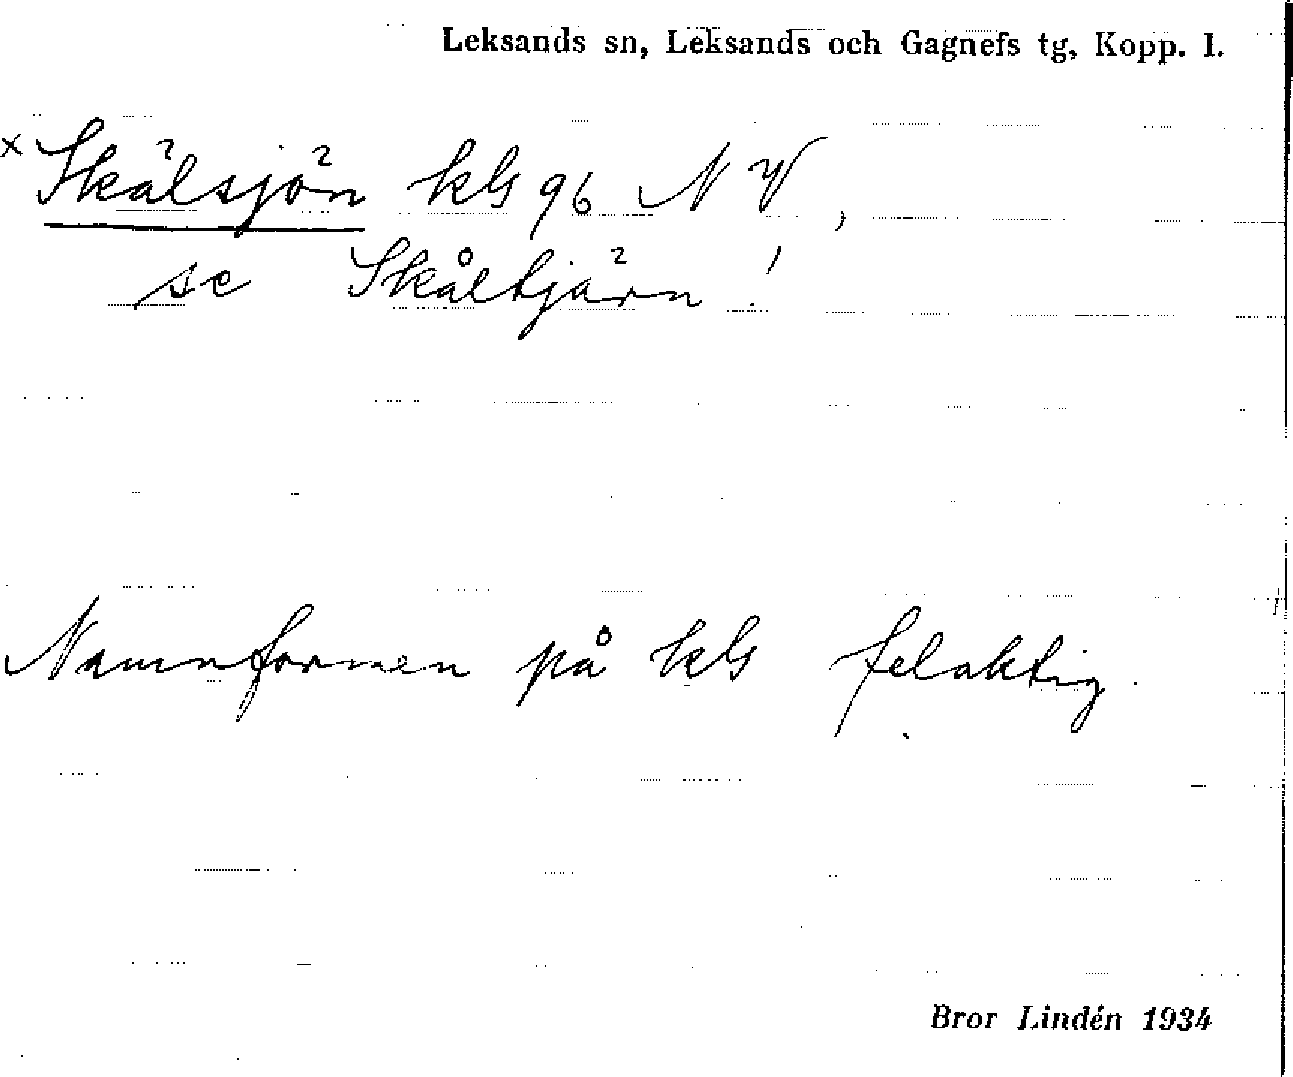 Leksands sn, Leksands och Gagnefs tg, Kopp. l.
x Skälsjön kls 96 NV,
se Skåltjärn!
Namnformen på kls felaktig.
Bror Lindén 1934